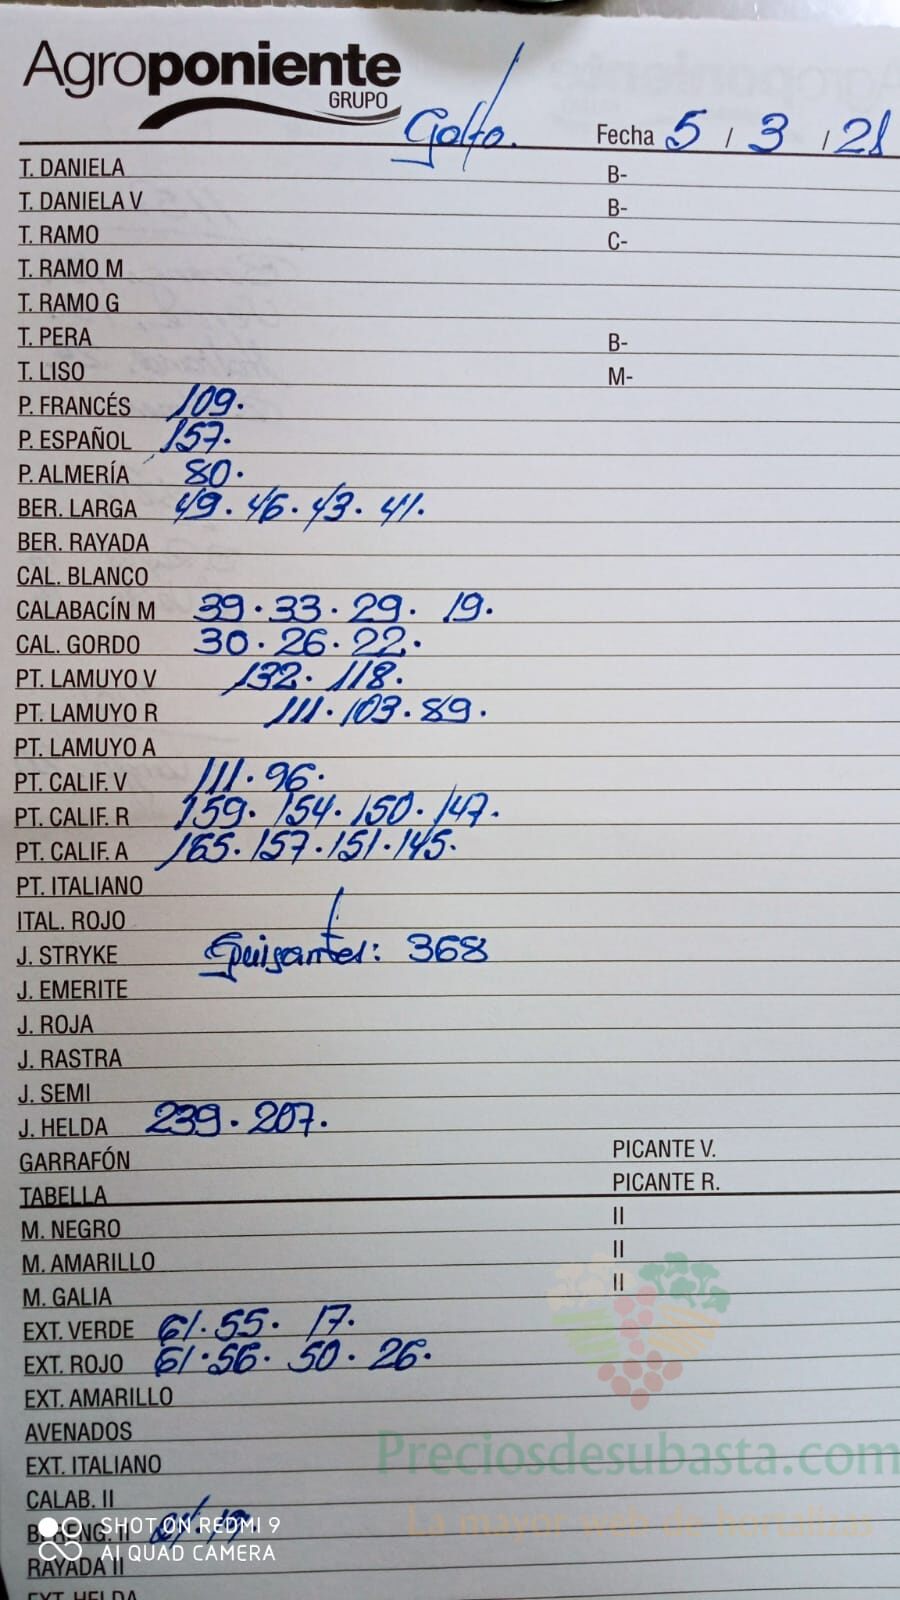 Agroponiente
GRUPO
Golfo. Fecha 5 / 3 / 21
T. DANIELA B-
T. DANIELA V B-
T. RAMO C-
T. RAMO M
T. RAMO G
T. PERA B-
T. LISO M-
P. FRANCÉS 109.
P. ESPAÑOL 157.
P. ALMERÍA 80.
BER. LARGA 49. 46. 43. 41.
BER. RAYADA
CAL. BLANCO
CALABACÍN M 39. 33. 29. 19.
CAL. GORDO 30. 26. 22.
PT. LAMUYO V 132. 118.
PT. LAMUYO R 111. 103. 89.
PT. LAMUYO A
PT. CALIF. V 111. 96.
PT. CALIF. R 159. 154. 150. 147.
PT. CALIF. A 165. 157. 151. 145.
PT. ITALIANO
ITAL. ROJO
J. STRYKE Guisantes: 368
J. EMERITE
J. ROJA
J. RASTRA
J. SEMI
J. HELDA 239. 207.
GARRAFÓN PICANTE V.
TABELLA PICANTE R.
M. NEGRO II
M. AMARILLO II
M. GALIA II
EXT. VERDE 61. 55. 17.
EXT. ROJO 61. 56. 50. 26.
EXT. AMARILLO
AVENADOS
EXT. ITALIANO
Preciosdesubasta.com
CALAB. II
La mayor web de hortalizas
SHOT ON REDMI 9
BERENG. II
AI QUAD CAMERA
RAYADA II
EXT. HELDA